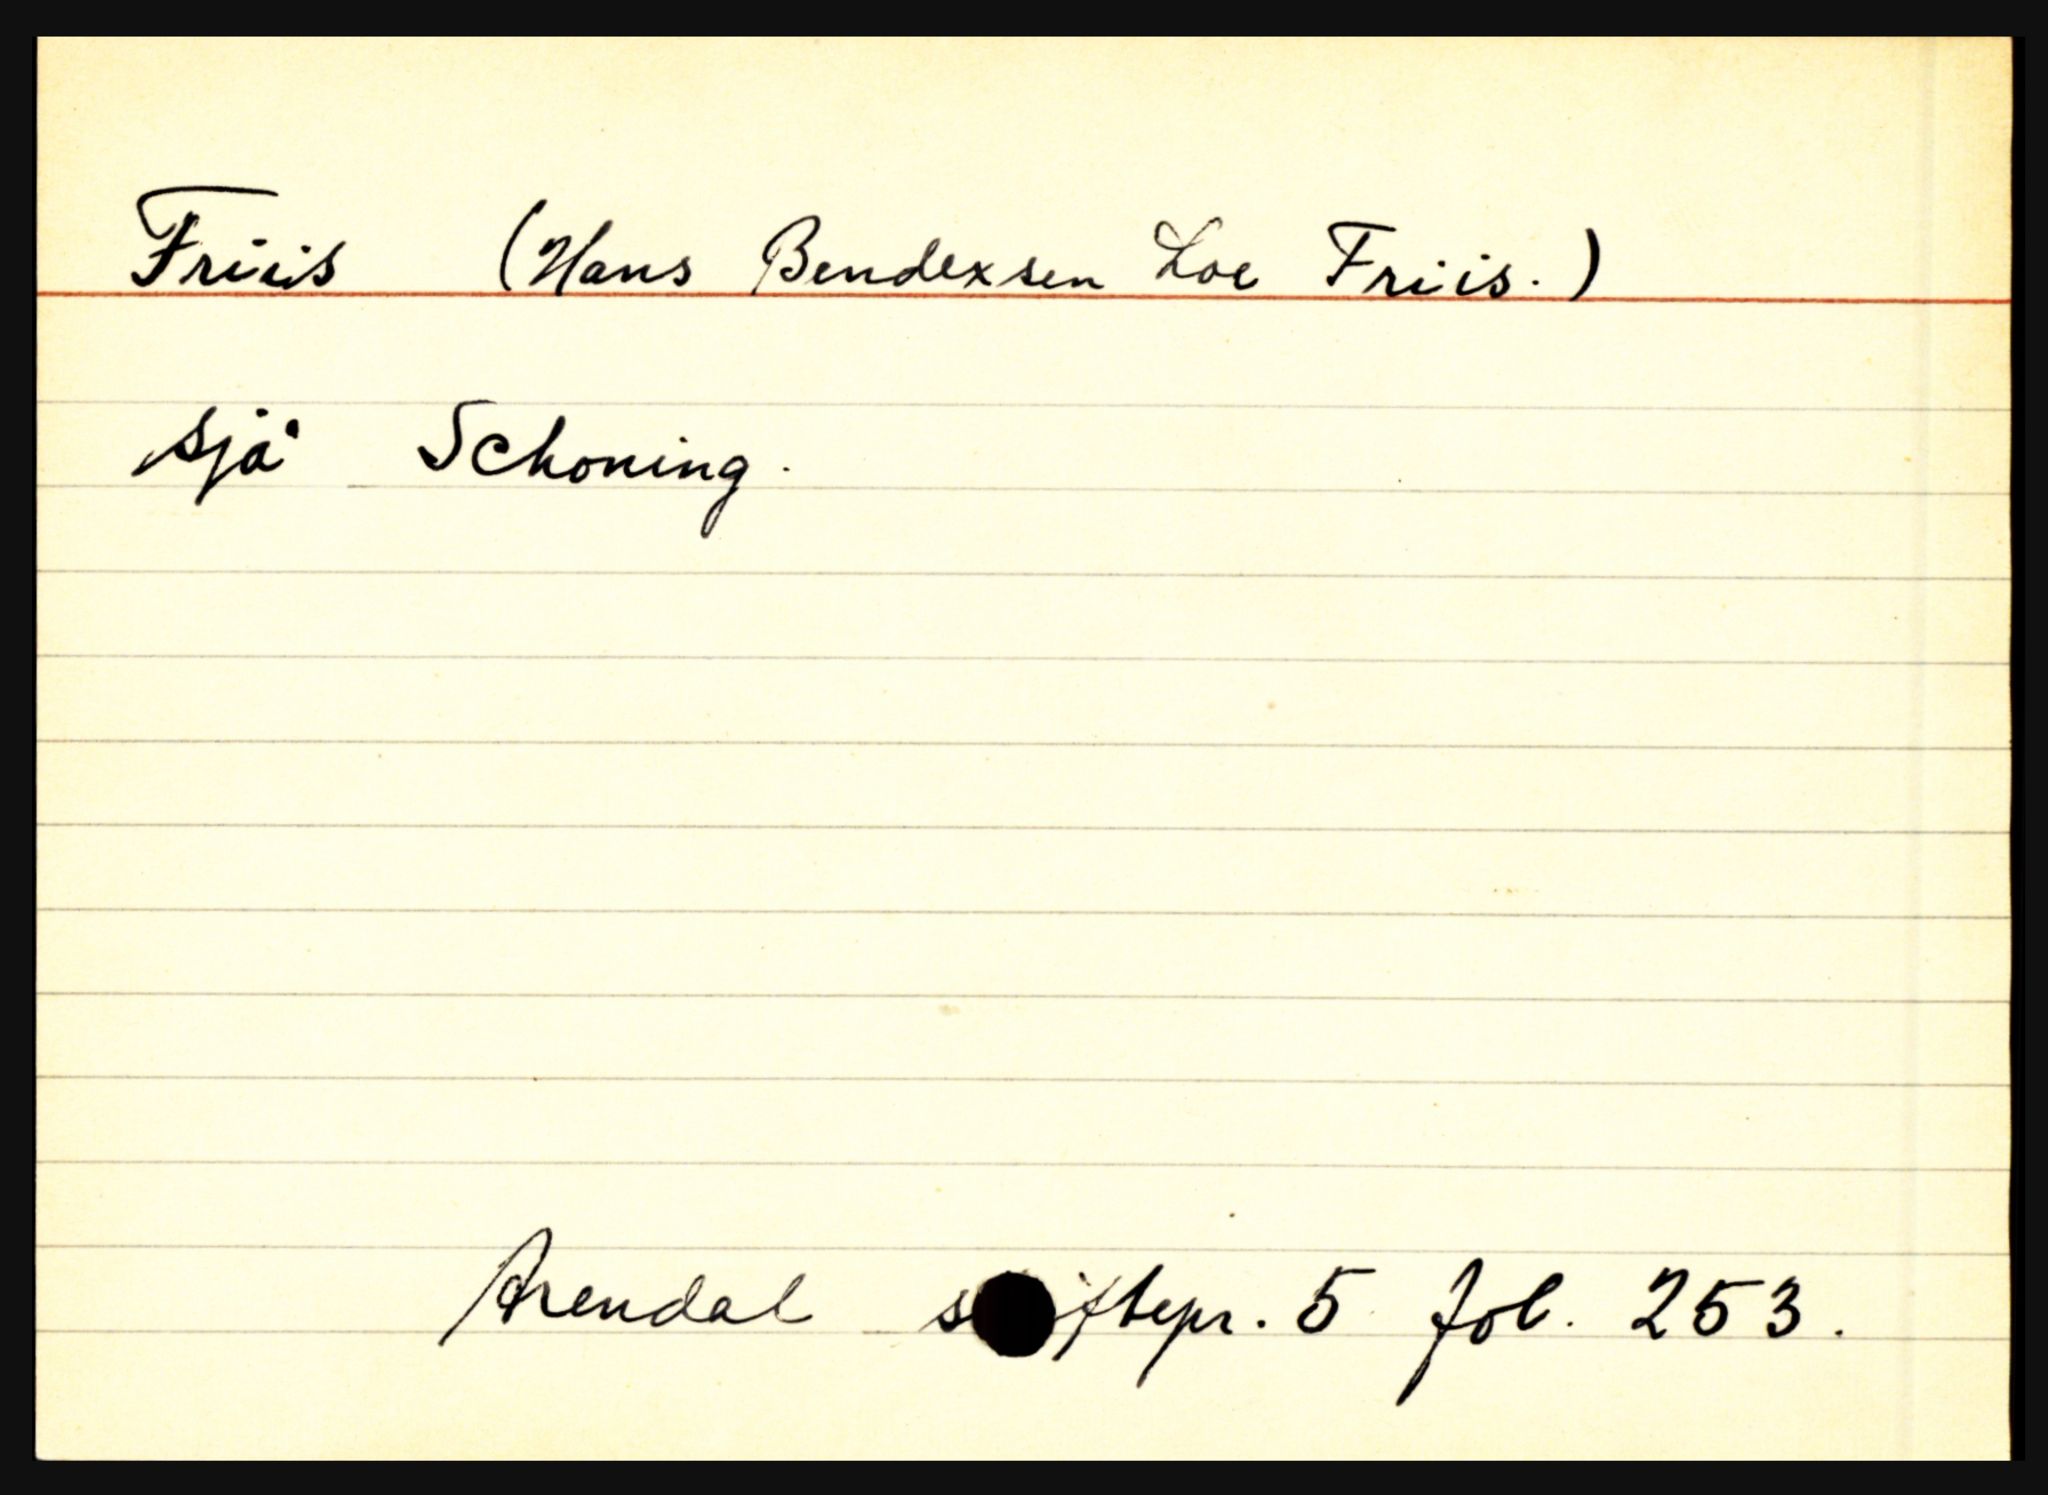 Friis (Hans Bendexsen Loe Friis.)
sjå Schoning.
Arendal 5 fol. 253.